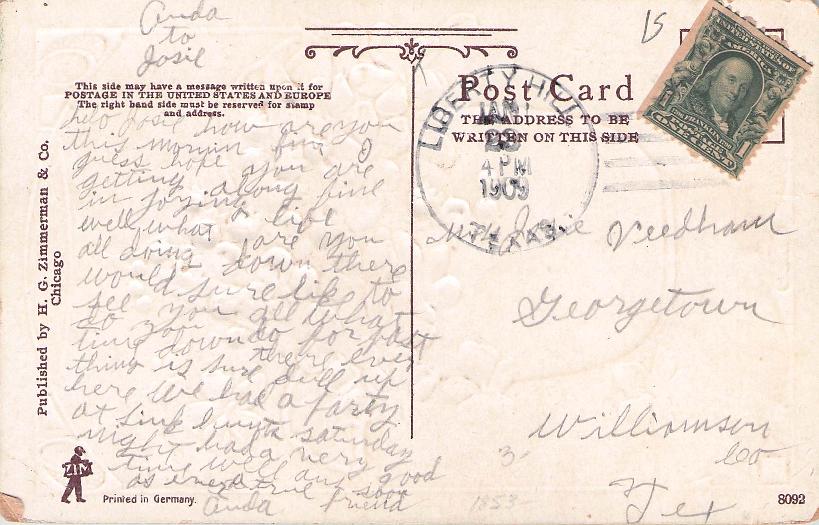 Anda
to
Josie
This side may have a message written upon it for
POSTAGE IN THE UNITED STATES AND EUROPE
The right hand side must be reserved for stamp
and address.
helo Josie how are you
this mornin fine
guess hope you are
getting along fine
in joying life
well, what are you
all doing down there
would sure like to
see you all what
do you do for past
time down there every
thing is sure dull up
here we had a party
at saturday
night had a very
time well ans good
as ever a true soon
Anda friend
Published by H. G. Zimmerman & Co.
Chicago
Printed in Germany.
15
Post Card
THE ADDRESS TO BE
WRITTEN ON THIS SIDE
LIBERTY HILL
JAN
4 PM
1909
TEXAS.
UNITED STATES OF
AMERICA
FRANKLIN
1 ONE CENT 1
Josie Needham
Georgetown
Williamson
Co
Tex
3
1853
8092